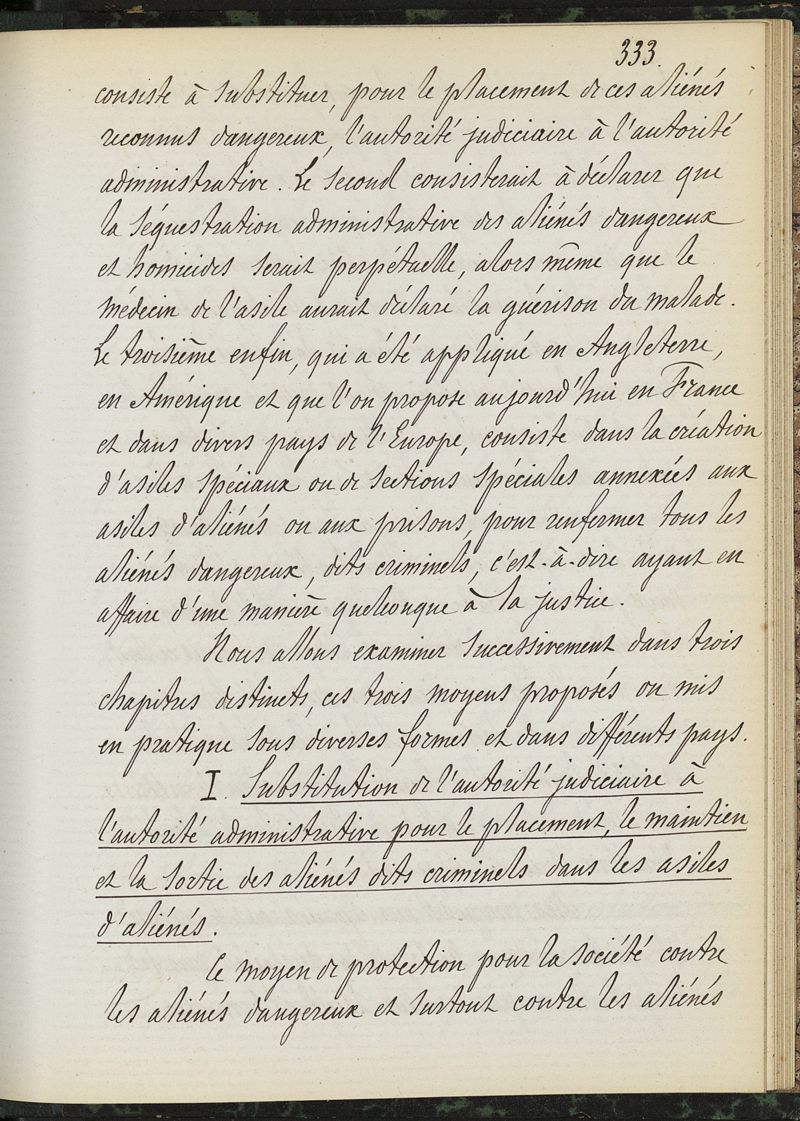 333.
consiste à substituer, pour le placement de ces aliénés
reconnus dangereux, l'autorité judiciaire à l'autorité
administrative. Le second consisterait à déclarer que
la séquestration administrative des aliénés dangereux
et homicides serait perpétuelle, alors même que le
médecin de l'asile aurait déclaré la guérison du malade.
Le troisième enfin, qui a été appliqué en Angleterre,
en Amérique et que l'on propose aujourd'hui en France
et dans divers pays de l'Europe, consiste dans la création
d'asiles spéciaux ou de sections spéciales annexées aux
asiles d'aliénés ou aux prisons, pour renfermer tous les
aliénés dangereux, dits criminels, c'est-à-dire ayant en
affaire d'une manière quelconque à la justice.
Nous allons examiner successivement dans trois
chapitres distincts, ces trois moyens proposés ou mis
en pratique sous diverses formes et dans différents pays.
I. Substitution de l'autorité judiciaire à
l'autorité administrative pour le placement, le maintien
et la sortie des aliénés dits criminels dans les asiles
d'aliénés.
Ce moyen de protection pour la société contre
les aliénés dangereux et surtout contre les aliénés